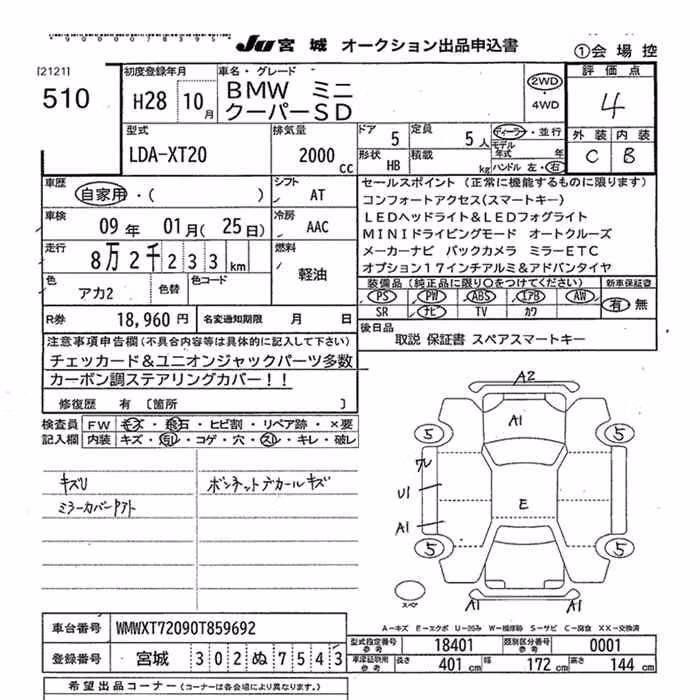 JU 宮城 オークション出品申込書
①会場控
[2121]
510
初度登録年月
H28 10月
車名・グレード
BMW ミニ
クーパーSD
2WD
・
4WD
評価点
4
外装 内装
C B
型式
LDA-XT20
排気量
2000 cc
ドア 5
定員 5人
形状 HB
積載 kg
ディーラー・並行
モデル年式 年
ハンドル 左・右
車歴
自家用・( )
シフト
AT
車検
09年 01月(25日)
冷房
AAC
走行
8万2千233km
燃料
軽油
色
アカ2
色替
色コード
R券 18,960円
名変通知期限 月 日
セールスポイント (正常に機能するものに限ります)
コンフォートアクセス(スマートキー)
LEDヘッドライト&LEDフォグライト
MINIドライビングモード オートクルーズ
メーカーナビ バックカメラ ミラーETC
オプション17インチアルミ&アドバンタイヤ
装備品(純正品に限り○をつけてください)
新車保証書
PS PW ABS エアB AW
SR ナビ TV カワ
有 無
後日品
取説 保証書 スペアスマートキー
注意事項申告欄(不具合内容等は具体的に記入して下さい)
チェッカード&ユニオンジャックパーツ多数
カーボン調ステアリングカバー!!
修復歴 有 〔箇所 〕
検査員
記入欄
FW キズ・飛石・ヒビ割・リペア跡・×要
内装 キズ・汚レ・コゲ・穴・スレ・キレ・破レ
キズU
ミラーカバーケアト
ボンネットデカールキズ
A2
A1
5
5
ワレ
U1
A1
E
5
5
A1
A1
スペア
A-キズ E-エクボ U-凹み W-補修跡 S-サビ C-腐食 XX-交換済
車台番号 WMWXT72090T859692
登録番号 宮城 302ぬ7543
型式指定番号 参考 18401
類別区分番号 参考 0001
車庫証明用 参考 長さ 401cm 幅 172cm 高さ 144cm
希望出品コーナー(コーナーは各会場により異なります。)